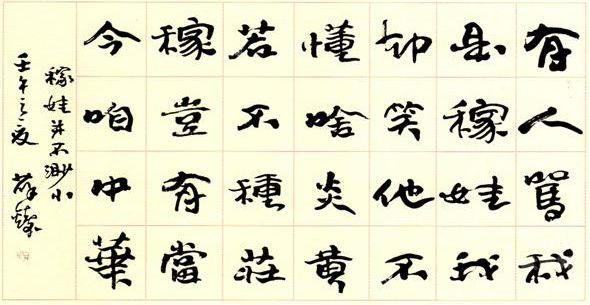 有人駡我
是稼娃我
却笑他不
懂啥炎黄
若不種莊
稼豈有當
今咱中華
稼娃并不渺小
壬午之夏 薛